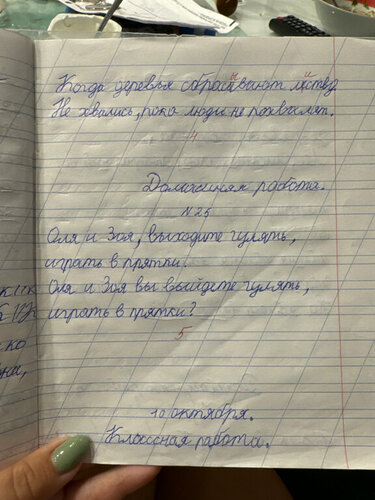 Когда деревья сбрасывают листву.
Не хвались, пока люди не похвалят.
4
Домашняя работа.
N 25
Оля и Зоя, выходите гулять,
играть в прятки!
Оля и Зоя вы выйдете гулять,
играть в прятки?
5
10 октября.
Классная работа.